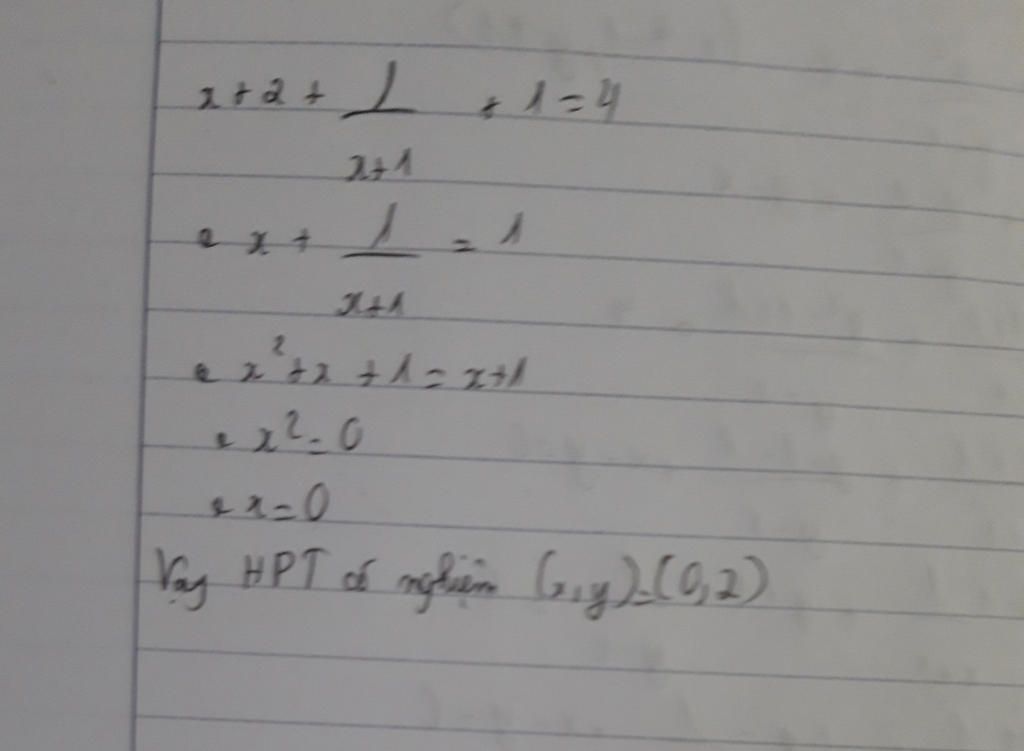 x+2+ 1/(x+1) + 1 = 4
⇔ x + 1/(x+1) = 1
⇔ x²+x+1 = x+1
⇔ x² = 0
⇔ x = 0
Vậy HPT có nghiệm (x,y)=(0,2)